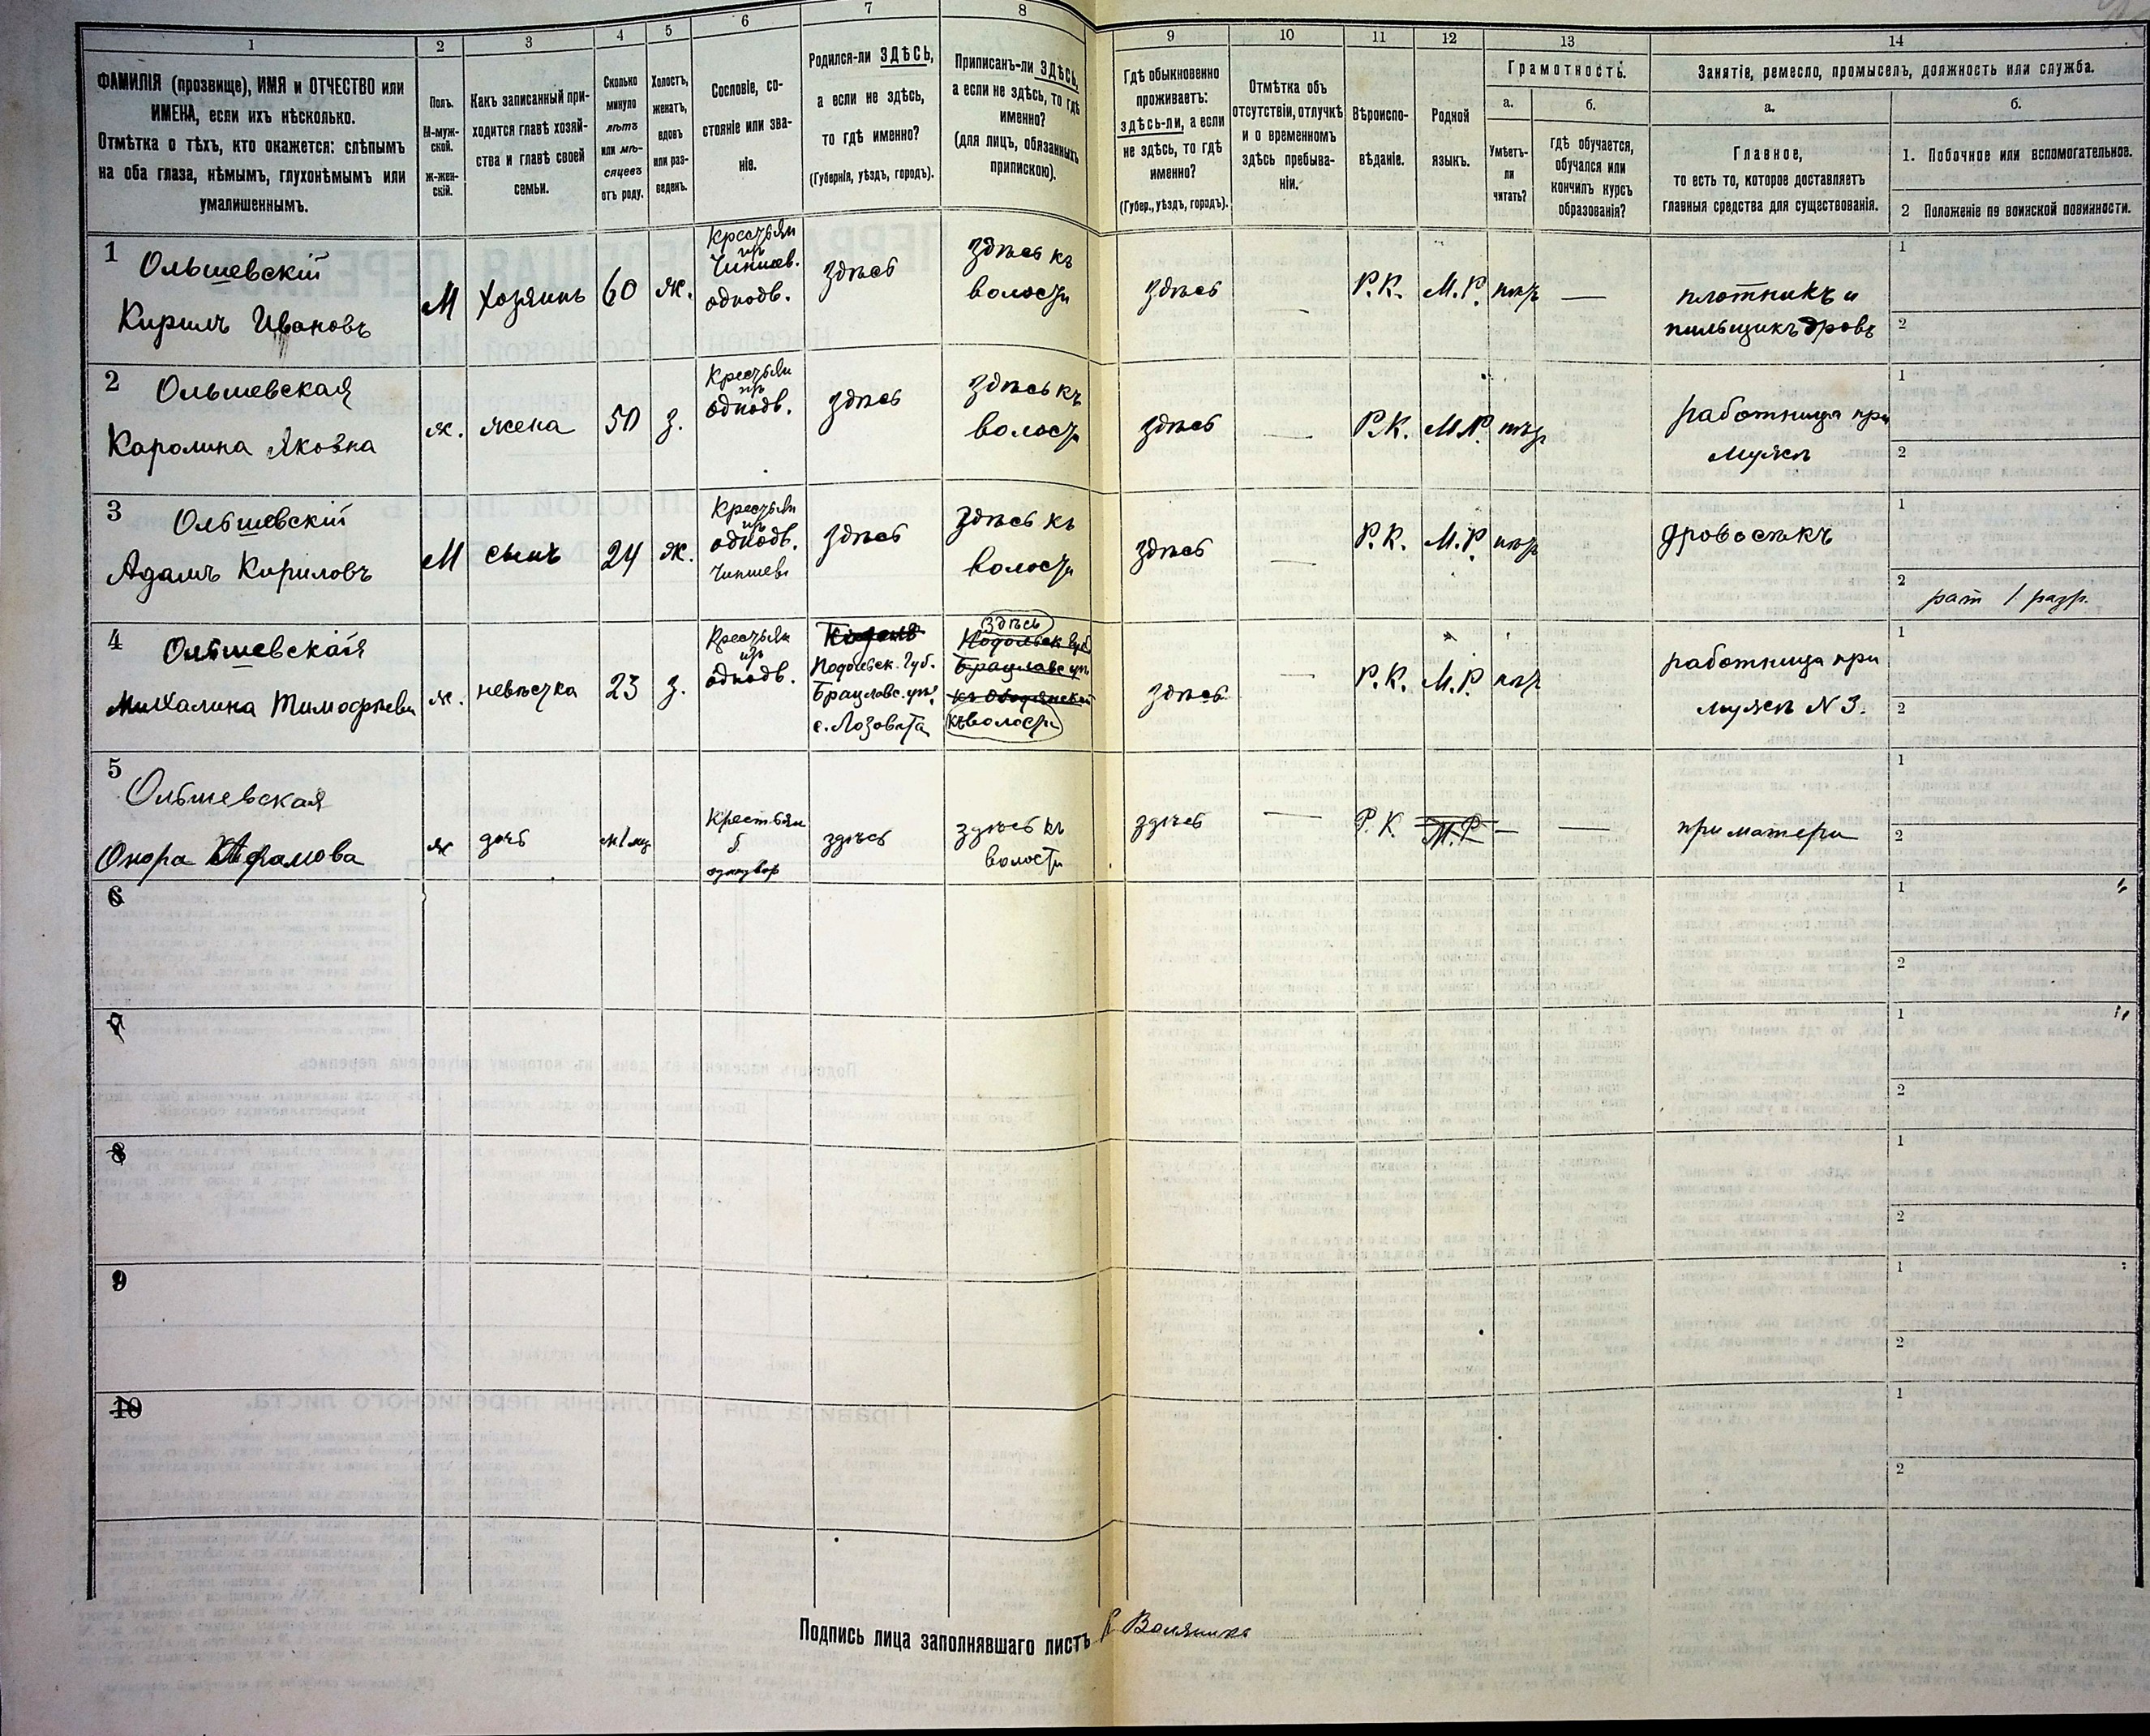 1 2 3 4 5 6 7 8 9 10 11 12 13 14
ФАМИЛІЯ (прозвище), ИМЯ и ОТЧЕСТВО или
ИМЕНА, если ихъ нѣсколько.
Отмѣтка о тѣхъ, кто окажется: слѣпымъ
на оба глаза, нѣмымъ, глухонѣмымъ или
умалишеннымъ.
Полъ.
М-муж-
ской.
Ж-жен-
скій.
Какъ записанный при-
ходится главѣ хозяй-
ства и главѣ своей
семьи.
Сколько
минуло
лѣтъ
или мѣ-
сяцевъ
отъ роду.
Холостъ,
женатъ,
вдовъ
или раз-
веденъ.
Сословіе, со-
стояніе или зва-
ніе.
Родился-ли ЗДѢСЬ,
а если не здѣсь,
то гдѣ именно?
(Губернія, уѣздъ, городъ).
Приписанъ-ли ЗДѢСЬ,
а если не здѣсь, то гдѣ
именно?
(для лицъ, обязанныхъ
припискою).
Гдѣ обыкновенно
проживаетъ:
здѣсь-ли, а если
не здѣсь, то гдѣ
именно?
(Губер., уѣздъ, городъ).
Отмѣтка объ
отсутствіи, отлучкѣ
и о временномъ
здѣсь пребыва-
ніи.
Вѣроиспо-
вѣданіе.
Родной
языкъ.
Грамотность.
а.
Умѣетъ-
ли
читать?
б.
гдѣ обучается,
обучался или
кончилъ курсъ
образованія?
Занятіе, ремесло, промыселъ, должность или служба.
а.
Главное,
то есть то, которое доставляетъ
главныя средства для существованія.
б.
1. Побочное или вспомогательное.
2 Положеніе по воинской повинности.
1 Ольшевскій
Кирилъ Ивановъ
М
хозяинъ
60
ж.
Крестьян
изъ
Чиншев.
однодв.
здѣсь
здѣсь къ
волости
здѣсь
—
Р.К.
М.Р.
нѣт
—
плотникъ и
пильщикъ дровъ
1
2
2 Ольшевская
Каролина Яковна
ж.
жена
50
з.
Крестьян
изъ
однодв.
здѣсь
здѣсь къ
волости
здѣсь
—
Р.К.
М.Р.
нѣт
работница при
мужѣ
1
2
3 Ольшевскій
Адамъ Кириловъ
М
сынъ
24
ж.
Крестьян
изъ
однодв.
Чиншев
здѣсь
здѣсь къ
волости
здѣсь
—
Р.К.
М.Р.
нѣт
дровосѣкъ
1
2
рат 1 разр.
4 Ольшевская
Михалина Тимофѣева
ж.
невѣстка
23
з.
Крестьян
изъ
однодв.
Подольск. губ.
Брацлавс. уѣз.
с. Лозовата
здѣсь
Подольск губ
Брацлавс уѣз
къ волости
здѣсь
—
Р.К.
М.Р.
нѣт
работница при
мужѣ N 3.
1
2
5 Ольшевская
Онора Адамова
ж
дочь
Крестьян
здѣсь
здѣсь къ
волости
здѣсь
—
Р.К.
М.Р.
—
—
при матери
1
2
6
1
2
7
1
2
8
1
2
9
1
2
10
1
2
Подпись лица заполнявшаго листъ